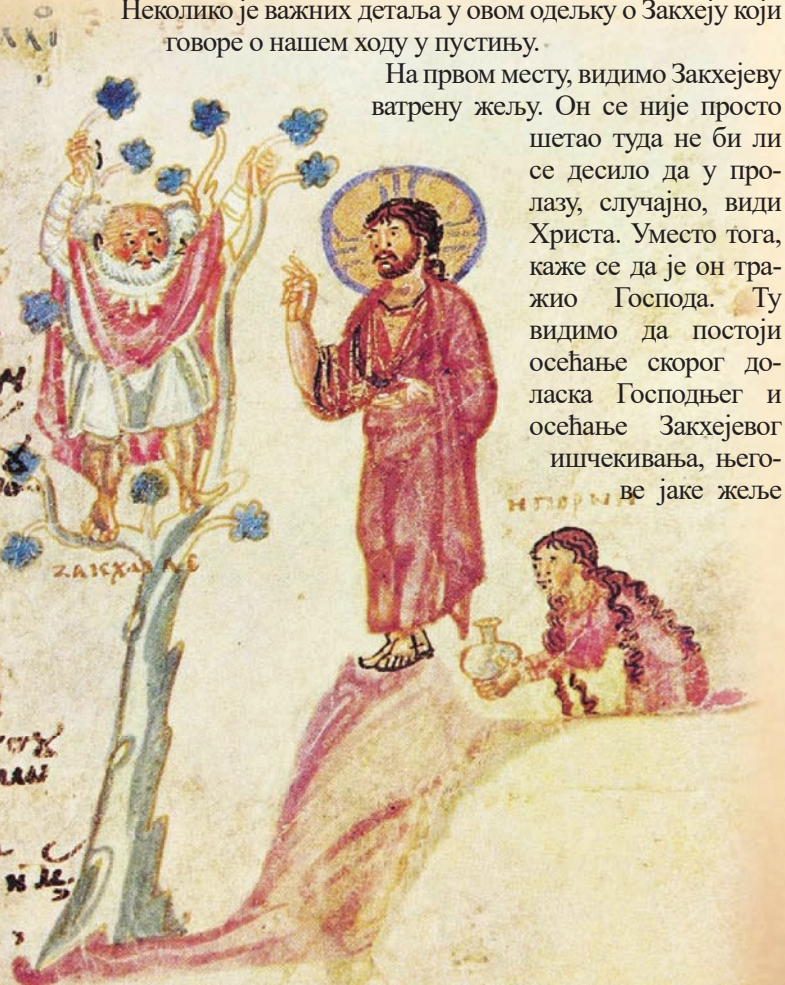 Неколико је важних детаља у овом одељку о Закхеју који
говоре о нашем ходу у пустињу.
На првом месту, видимо Закхејеву
ватрену жељу. Он се није просто
шетао туда не би ли
се десило да у про-
лазу, случајно, види
Христа. Уместо тога,
каже се да је он тра-
жио Господа. Ту
видимо да постоји
осећање скорог до-
ласка Господњег и
осећање Закхејевог
ишчекивања, њего-
ве јаке жеље
Η ΠΟΡΝΗ